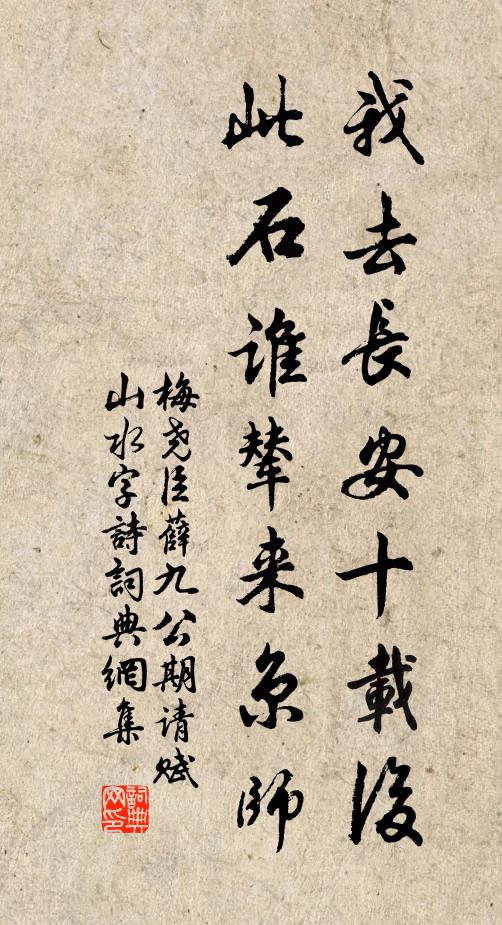 我去長安十載後
此石誰輦来京師
梅尧臣薛九公期请赋
山水字詩詞典網集
詞典网印